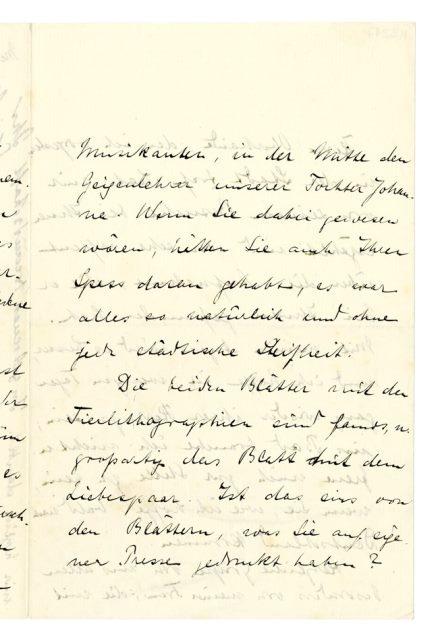 Musikanten, in der Mitte den
Geigenlehrer unserer Tochter Johan-
ne. Wenn Sie dabei gewesen
wären, hätten Sie auch Ihren
Spass daran gehabt, es war
alles so natürlich und ohne
jede städtische Steifheit.
Die beiden Blätter mit den
Tierlithographien sind famos, u.
grossartig das Blatt mit dem
Liebespaar. Ist das eins von
den Blättern, was Sie auf eige-
ner Presse gedruckt haben?